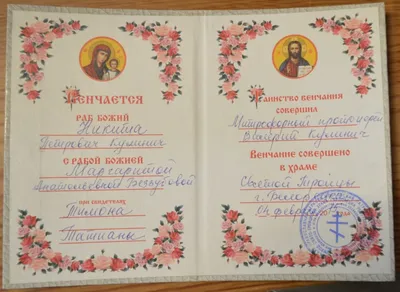 Венчается
раб Божий
Никита
Петрович Кулинич
с рабой Божией
Маргаритой
Анатольевной
при свидетелях
Тимона
Татианы
Таинство венчания
совершил
Митрофорный протоиерей
Валерий Кулинич
Венчание совершено
в храме
Святой Троицы
г. Белгорода
04 февраля